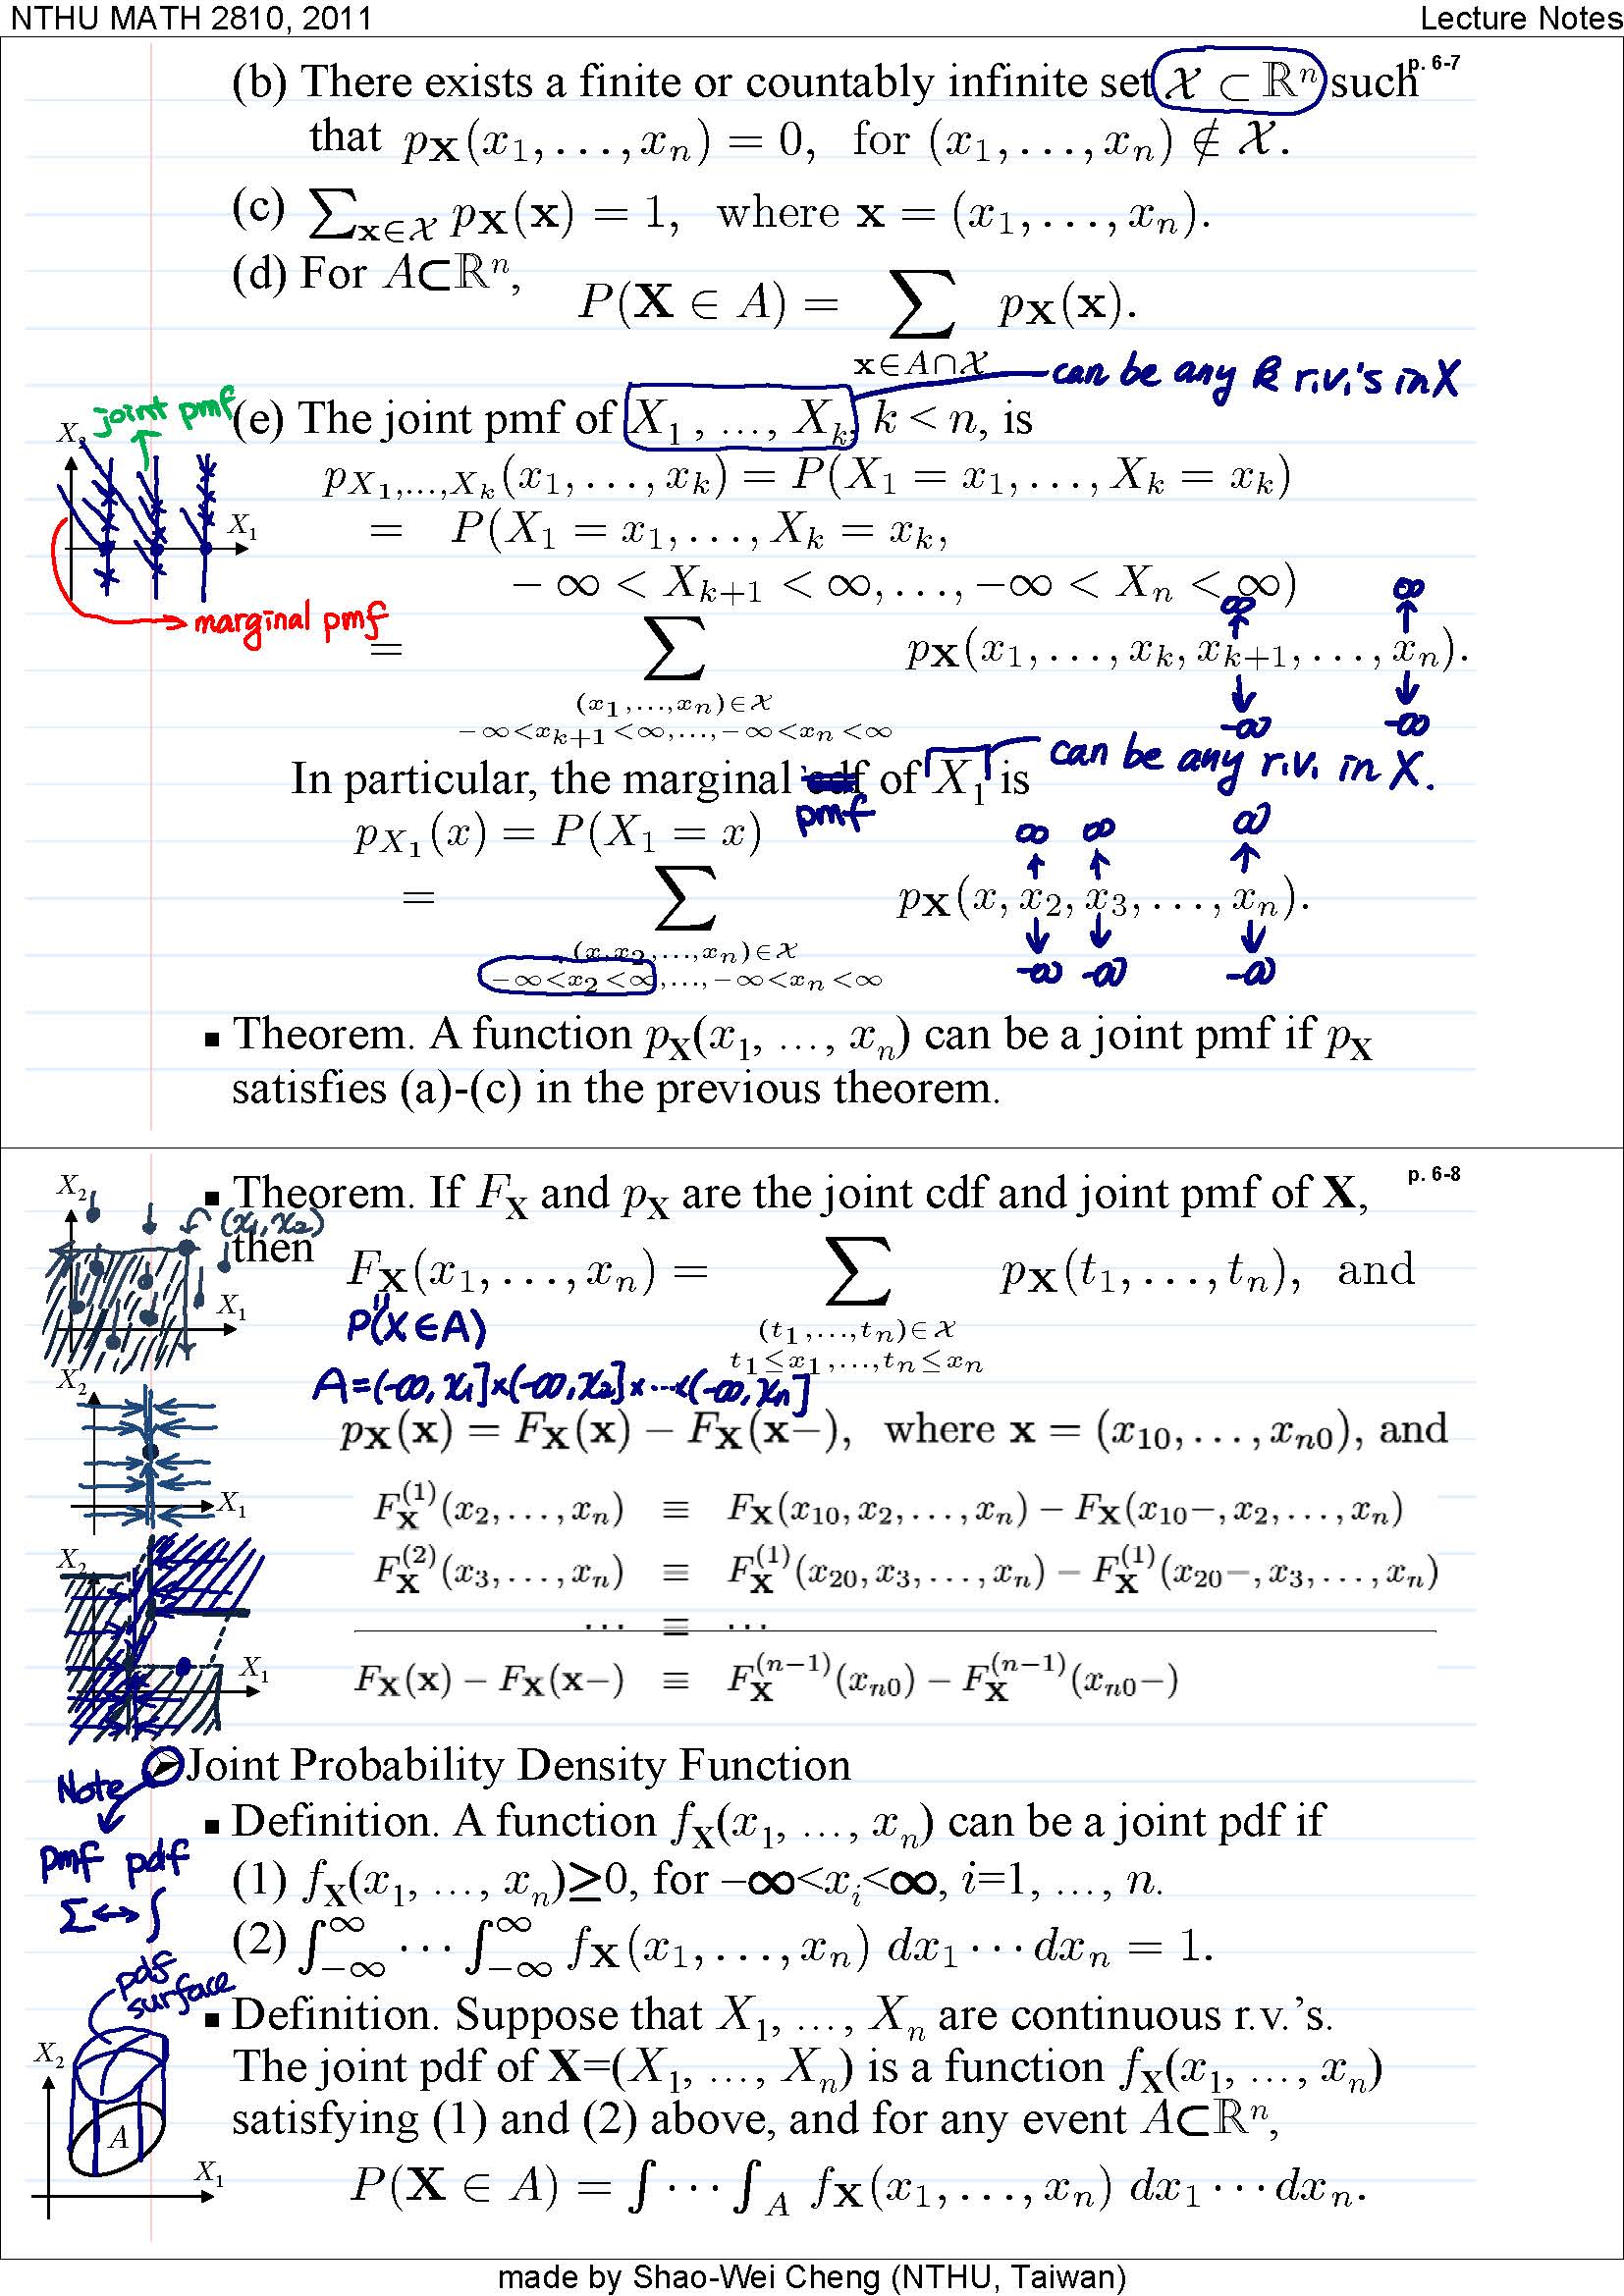 NTHU MATH 2810, 2011 Lecture Notes
p. 6-7
(b) There exists a finite or countably infinite set 𝒳 ⊂ ℝⁿ such
that p_𝐗(x₁, …, xₙ) = 0, for (x₁, …, xₙ) ∉ 𝒳.
(c) ∑_{𝐱∈𝒳} p_𝐗(𝐱) = 1, where 𝐱 = (x₁, …, xₙ).
(d) For A⊂ℝⁿ,
P(𝐗 ∈ A) = ∑_{𝐱∈A∩𝒳} p_𝐗(𝐱).
can be any k r.v.'s in X
joint pmf
(e) The joint pmf of X₁, …, X_k, k < n, is
X₂
p_{X₁,…,X_k}(x₁, …, x_k) = P(X₁ = x₁, …, X_k = x_k)
X₁
= P(X₁ = x₁, …, X_k = x_k,
−∞ < X_{k+1} < ∞, …, −∞ < Xₙ < ∞)
marginal pmf
∞ ∞
= ∑_{(x₁,…,xₙ)∈𝒳, −∞<x_{k+1}<∞,…,−∞<xₙ<∞} p_𝐗(x₁, …, x_k, x_{k+1}, …, xₙ).
-∞ -∞
In particular, the marginal cdf of X₁ is
pmf
can be any r.v. in X.
p_{X₁}(x) = P(X₁ = x)
∞ ∞ ∞
= ∑_{(x,x₂,…,xₙ)∈𝒳, −∞<x₂<∞,…,−∞<xₙ<∞} p_𝐗(x, x₂, x₃, …, xₙ).
-∞ -∞ -∞
▪ Theorem. A function p_𝐗(x₁, …, xₙ) can be a joint pmf if p_𝐗
satisfies (a)-(c) in the previous theorem.
p. 6-8
▪ Theorem. If F_𝐗 and p_𝐗 are the joint cdf and joint pmf of 𝐗,
X₂
(x₁, x₂)
then
F_𝐗(x₁, …, xₙ) = ∑_{(t₁,…,tₙ)∈𝒳, t₁≤x₁,…,tₙ≤xₙ} p_𝐗(t₁, …, tₙ), and
X₁
"
P(X∈A)
A=(-∞, x₁]×(-∞, x₂]×⋯×(-∞, xₙ]
X₂
p_𝐗(𝐱) = F_𝐗(𝐱) − F_𝐗(𝐱−), where 𝐱 = (x₁₀, …, xₙ₀), and
X₁
F_𝐗^{(1)}(x₂, …, xₙ) ≡ F_𝐗(x₁₀, x₂, …, xₙ) − F_𝐗(x₁₀−, x₂, …, xₙ)
X₂
F_𝐗^{(2)}(x₃, …, xₙ) ≡ F_𝐗^{(1)}(x₂₀, x₃, …, xₙ) − F_𝐗^{(1)}(x₂₀−, x₃, …, xₙ)
⋯ ≡ ⋯
X₁
F_𝐗(𝐱) − F_𝐗(𝐱−) ≡ F_𝐗^{(n−1)}(xₙ₀) − F_𝐗^{(n−1)}(xₙ₀−)
➢Joint Probability Density Function
Note
▪ Definition. A function f_𝐗(x₁, …, xₙ) can be a joint pdf if
pmf pdf
(1) f_𝐗(x₁, …, xₙ)≥0, for −∞<xᵢ<∞, i=1, …, n.
Σ↔∫
(2) ∫_{−∞}^{∞} ⋯ ∫_{−∞}^{∞} f_𝐗(x₁, …, xₙ) dx₁⋯dxₙ = 1.
pdf
surface
▪ Definition. Suppose that X₁, …, Xₙ are continuous r.v.'s.
X₂
The joint pdf of 𝐗=(X₁, …, Xₙ) is a function f_𝐗(x₁, …, xₙ)
satisfying (1) and (2) above, and for any event A⊂ℝⁿ,
A
X₁
P(𝐗 ∈ A) = ∫⋯∫_A f_𝐗(x₁, …, xₙ) dx₁⋯dxₙ.
made by Shao-Wei Cheng (NTHU, Taiwan)